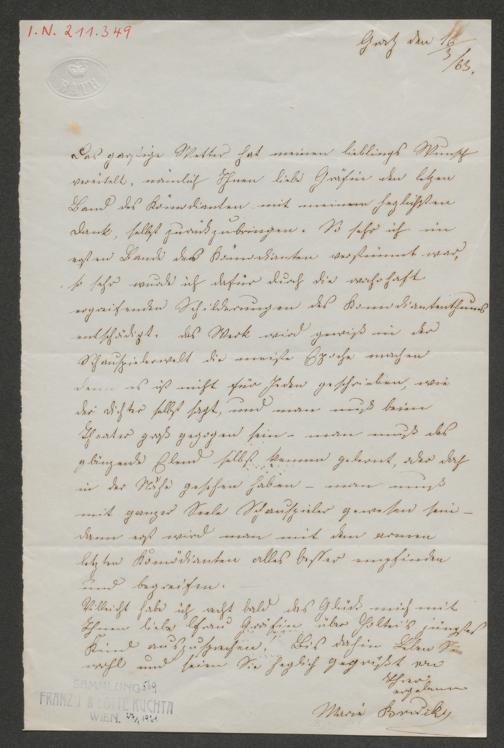 I.N. 211.349
BATH
Gratz den 16/3/63.
Das garstige Wetter hat meinen lieblings Wunsch
vereitelt, nämlich Ihnen liebe Gräfin den letzten
Band des Komödianten mit meinem herzlichsten
Dank, selbst zurückzubringen. So sehr ich im
ersten Bande des Komödianten verstimmt war,
so sehr wurde ich dafür durch die wahrhaft
ergreifenden Schilderungen des Komödiantenthums
entschädigt. Das Werk wird gewiß in der
Schauspielerwelt die meiste Epoche machen
denn es ist nicht für Jeden geschrieben, wie
der Dichter selbst sagt, und man muß beim
Theater groß gezogen sein – man muß das
glänzende Elend selbst kennen gelernt, oder doch
in der Nähe gesehen haben – man muß
mit ganzer Seele Schauspieler gewesen sein –
dann erst wird man mit dem armen
letzten Komödianten alles besser empfinden
und begreifen.
Vielleicht habe ich recht bald das Glück mich mit
Ihnen liebe Frau Gräfin über Holtei's jüngstes
Kind auszusprechen. Bis dahin leben Sie
wohl und seien Sie herzlich gegrüßt von
Ihrer
ergebenen
Marie
SAMMLUNG
FRANZ J. & LOTTE KUCHTA
WIEN.